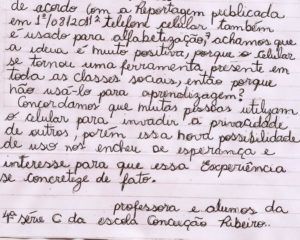 de acordo com a Reportagem publicada
em 1º/08/2012 telefone celular também
é usado para alfabetização? achamos que
a ideia é muito positiva, porque o celular
se tornou uma ferramenta presente em
toda as classes sociais, então porque
não usá-lo para aprendizagem?
Concordamos que muitas pessoas utilizam
o celular para invadir a privacidade
de outros, porém essa nova possibilidade
de uso nos encheu de esperança e
interesse para que essa Experiência
se concretize de fato.
professora e alunos da
4ª série C da escola Conceição Ribeiro.